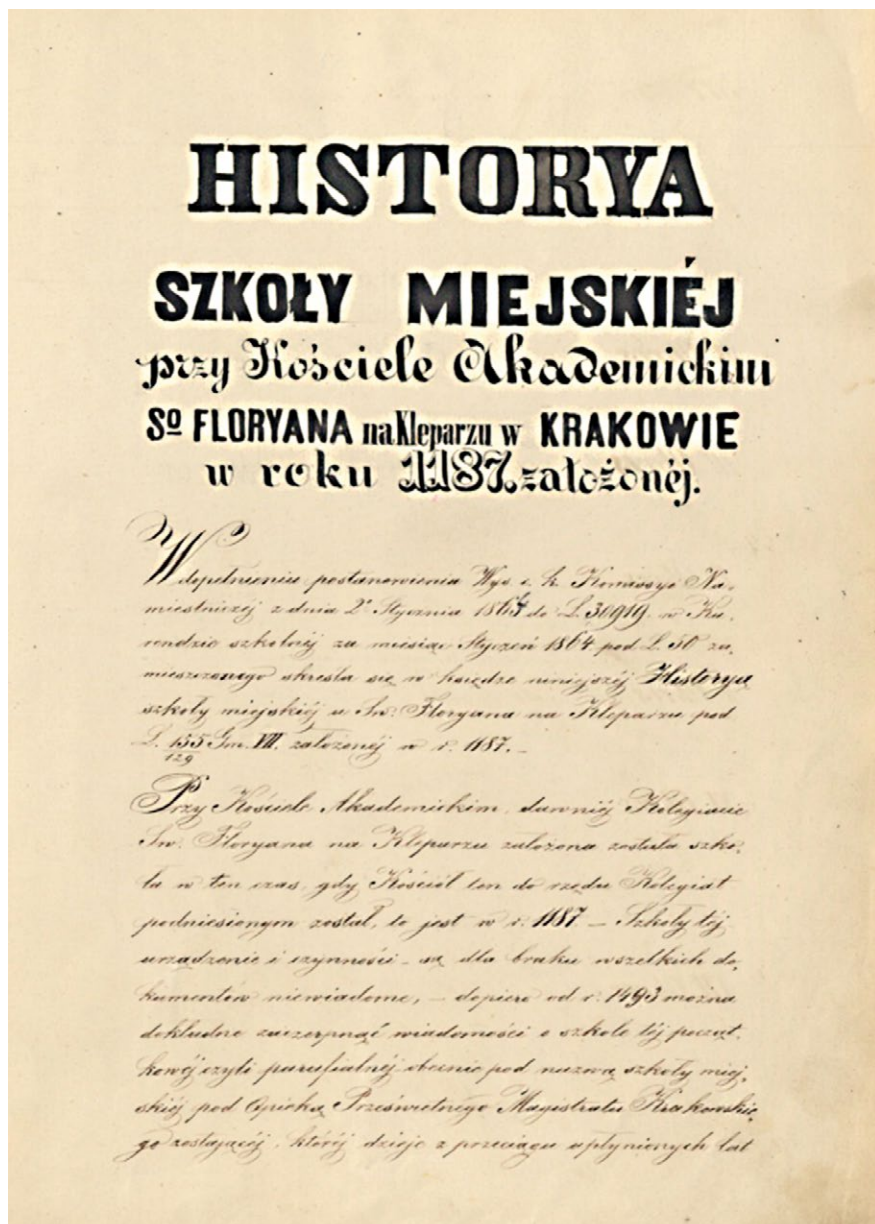 HISTORYA
SZKOŁY MIEJSKIÉJ
przy Kościele Akademickim
Sº FLORYANA na Kleparzu w KRAKOWIE
w roku 1187. założonéj.
W dopełnieniu postanowienia Wys. c. k. Kommissyi Na,
miestniczéj z dnia 2º Stycznia 1864 do L. 30919. w Ku,
rendzie szkolnéj za miesiąc Styczeń 1864 pod L. 50 za,
mieszczonego skreśla się w księdze niniejszéj Historya
szkoły miejskiéj u Św. Floryana na Kleparzu pod
L. 155/129 Gm. VII. założonéj w r. 1187. –
Przy Kościele Akademickim, dawniéj Kolegiacie
Św. Floryana na Kleparzu założona została szko,
ła w ten czas, gdy Kościół ten do rzędu Kolegiat
podniesionym został, to jest w r. 1187 – Szkoły téj
urządzenie i czynności – są dla braku wszelkich do,
kumentów niewiadome, – dopiero od r. 1493 można
dokładne zaczerpnąć wiadomości o szkole téj począt,
kowéj czyli parafialnéj obecnie pod nazwą szkoły miej,
skiéj pod Opieką Prześwietnego Magistratu Krakowskie,
go zostającéj, któréj dzieje z przeciągu upłynionych lat